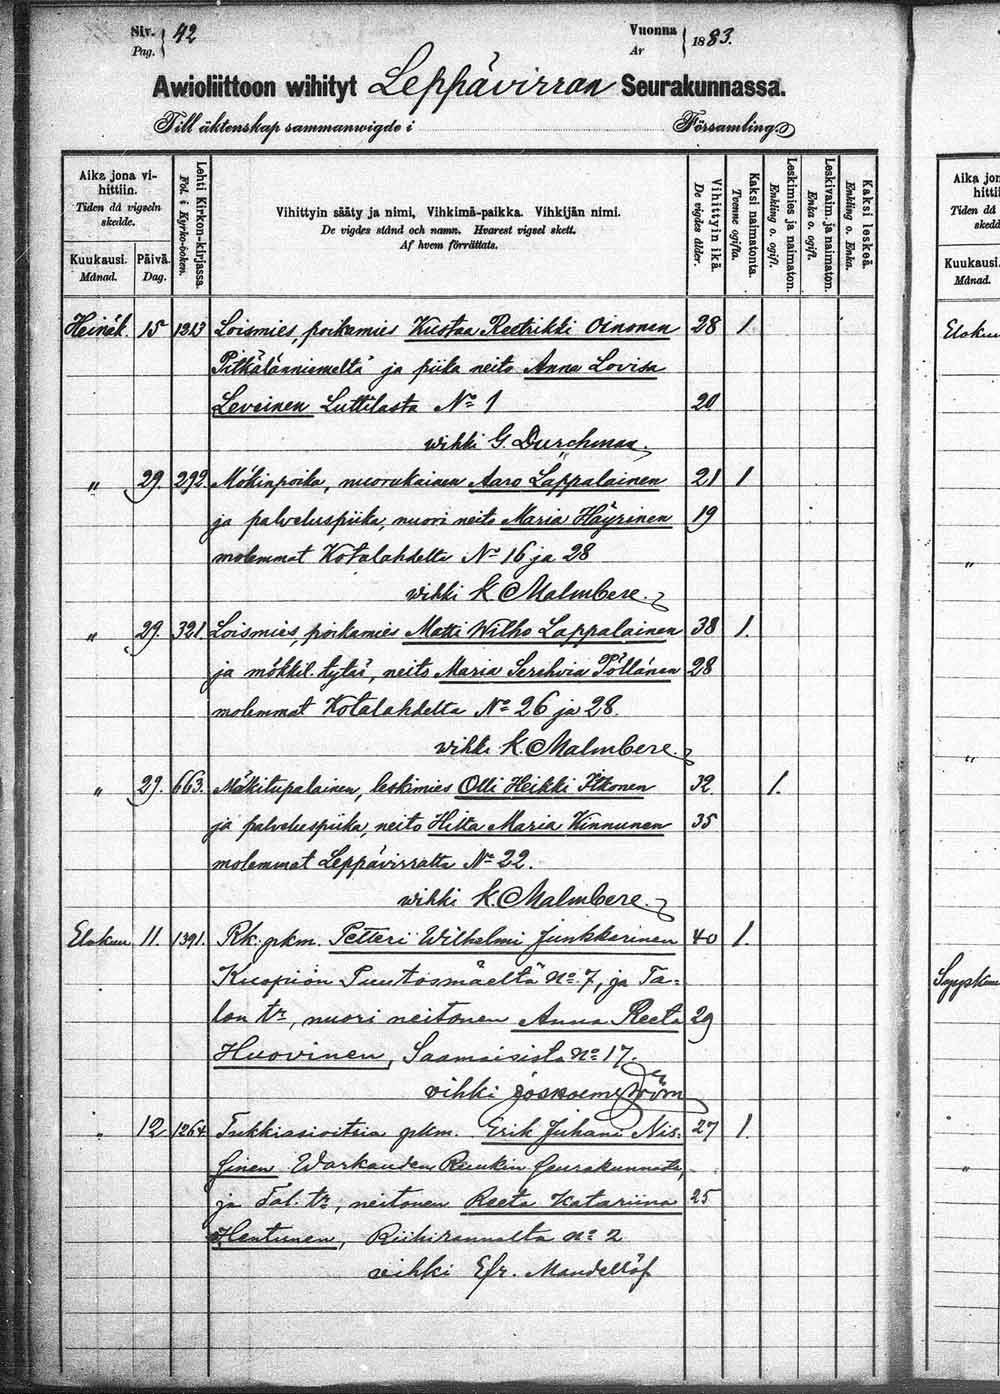 Siv. Pag. 42
Vuonna År 1883.
Awioliittoon wihityt Leppävirran Seurakunnassa.
Till äktenskap sammanwigde i Församling
Aika jona vihittiin.
Tiden då vigseln skedde.
Kuukausi. Månad.
Päivä. Dag.
Lehti Kirkon-kirjassa.
Fol. i Kyrko-boken.
Vihittyin sääty ja nimi, Vihkimä-paikka. Vihkijän nimi.
De vigdes stånd och namn. Hvarest vigsel skett.
Af hvem förrättats.
Vihittyin ikä.
De vigdes ålder.
Kaksi naimatonta.
Tvenne ogifta.
Leskimies ja naimaton.
Enkling o. ogift.
Leskivaim. ja naimaton.
Enka o. ogift.
Kaksi leskeä.
Enkling o. Enka.
Heinäk. 15 1213 Loismies, poikamies Kustaa Reetrikki Oinonen 28 1
Pitkälänniemeltä ja piika neito Anna Lovisa
Leveinen Luttilasta No 1 20
wihki G. Durchman.
" 29. 292 Mökinpoika, nuorukainen Aaro Lappalainen 21 1
ja palveluspiika, nuori neito Maria Häyrinen 19
molemmat Kotalahdelta No 16 ja 28
wihki K. Malmberg.
" 29. 321. Loismies, poikamies Matti Wilho Lappalainen 38 1.
ja mökkil. tytär, neito Maria Pöllänen 28
molemmat Kotalahdelta No 26 ja 28.
wihki K. Malmberg.
" 29. 663. Mäkitupalainen, leskimies Olli Heikki Itkonen 32. 1.
ja palveluspiika, neito Hitta Maria Kinnunen 35
molemmat Leppävirralta No 22.
wihki K. Malmberg.
Elokuu 11. 1391. Rk. pkm. Petteri Wilhelmi Junkkarinen 40 1.
Kuopion Puutosmäeltä No. 7, ja Ta=
lon tr, nuori neitonen Anna Reeta 29
Huovinen, Saamaisista No 17.
vihki
" 12 1264 Tukkiasioitsia pkm. Erik Juhani Nis= 27 1.
sinen Warkauden Ruukin Seurakunnasta,
ja Tal. tr, neitonen Reeta Katariina 25
Hentunen, Riihirannalta No 2
vihki Efr. Mandellöf
Aika jona
vihitti
Tiden då
skedd
Kuukausi.
Månad.
Elokuu
"
"
Syyskuu
"